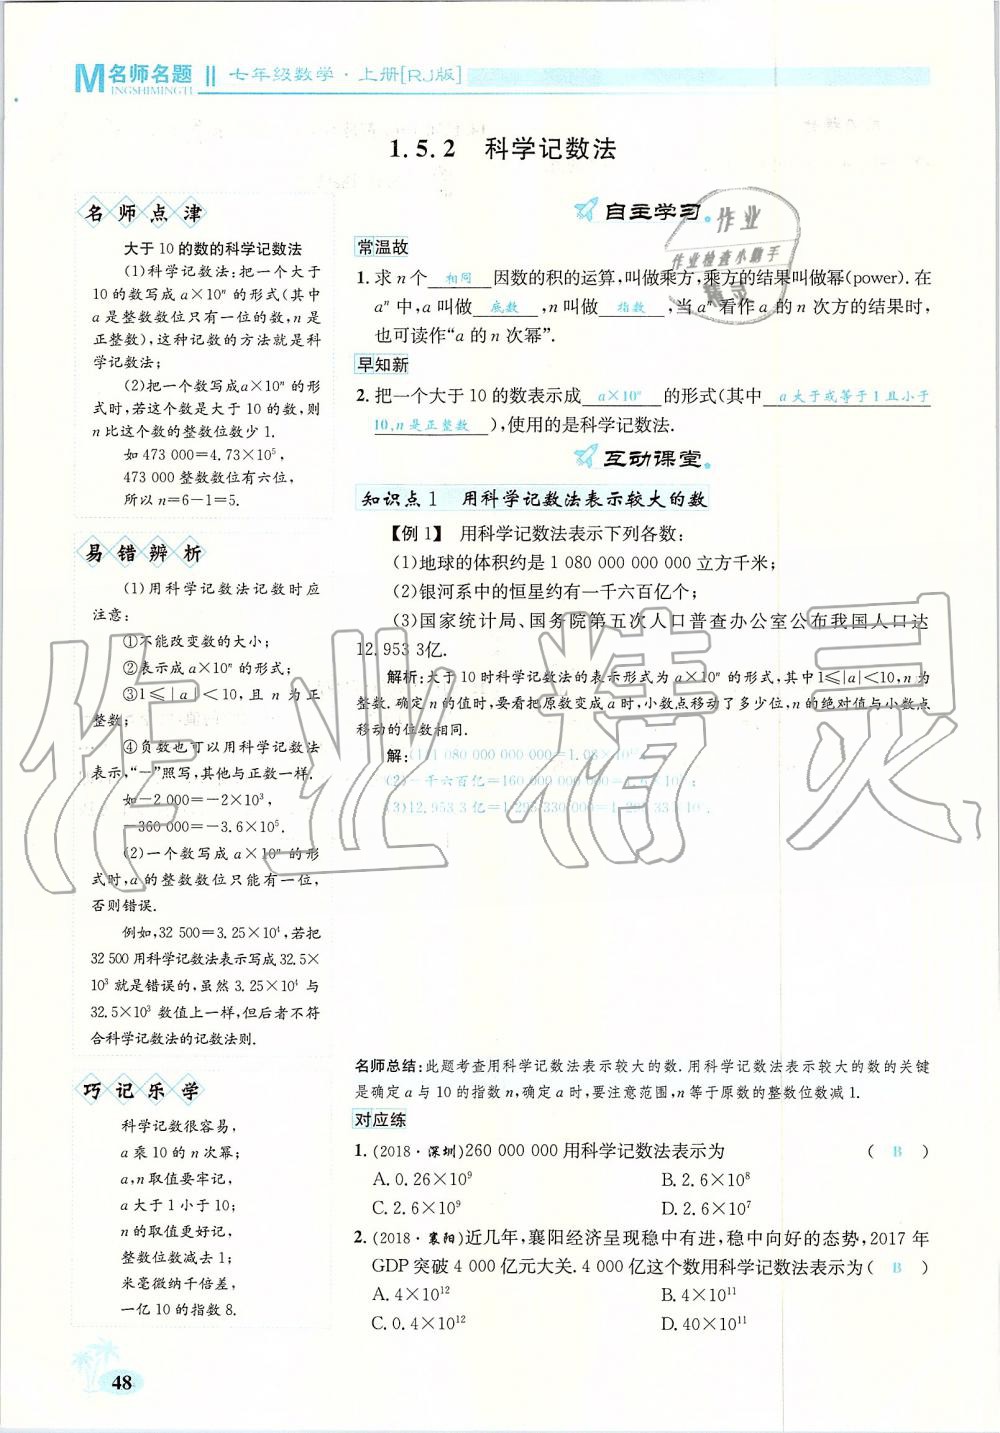 M名师名题 ‖ 七年级数学·上册[RJ版]
INGSHIMINGTI
1.5.2 科学记数法
名师点津
大于10的数的科学记数法
(1)科学记数法:把一个大于
10的数写成a×10ⁿ的形式(其中
a是整数数位只有一位的数,n是
正整数),这种记数的方法就是科
学记数法;
(2)把一个数写成a×10ⁿ的形
式时,若这个数是大于10的数,则
n比这个数的整数位数少1.
如473 000=4.73×10⁵,
473 000整数数位有六位,
所以n=6-1=5.
易错辨析
(1)用科学记数法记数时应
注意:
①不能改变数的大小;
②表示成a×10ⁿ的形式;
③1≤|a|<10,且n为正
整数;
④负数也可以用科学记数法
表示,“-”照写,其他与正数一样.
如-2 000=-2×10³,
-360 000=-3.6×10⁵.
(2)一个数写成a×10ⁿ的形
式时,a的整数数位只能有一位,
否则错误.
例如,32 500=3.25×10⁴,若把
32 500用科学记数法表示写成32.5×
10³就是错误的,虽然3.25×10⁴与
32.5×10³数值上一样,但后者不符
合科学记数法的记数法则.
巧记乐学
科学记数很容易,
a乘10的n次幂;
a,n取值要牢记,
a大于1小于10;
n的取值更好记,
整数位数减去1;
米毫微纳千倍差,
一亿10的指数8.
48
自主学习
常温故
1.求n个 相同 因数的积的运算,叫做乘方,乘方的结果叫做幂(power).在
aⁿ中,a叫做 底数 ,n叫做 指数 ,当aⁿ看作a的n次方的结果时,
也可读作“a的n次幂”.
早知新
2.把一个大于10的数表示成 a×10ⁿ 的形式(其中 a大于或等于1且小于
10,n是正整数 ),使用的是科学记数法.
互动课堂
知识点1 用科学记数法表示较大的数
【例1】 用科学记数法表示下列各数:
(1)地球的体积约是1 080 000 000 000立方千米;
(2)银河系中的恒星约有一千六百亿个;
(3)国家统计局、国务院第五次人口普查办公室公布我国人口达
12.953 3亿.
解析:大于10时科学记数法的表示形式为a×10ⁿ的形式,其中1≤|a|<10,n为
整数.确定n的值时,要看把原数变成a时,小数点移动了多少位,n的绝对值与小数点
移动的位数相同.
解:(1)1 080 000 000 000=1.08×10
(2)一千六百亿=160 000 000 000=
(3)12.953 3亿=1 295 330 000=
名师总结:此题考查用科学记数法表示较大的数.用科学记数法表示较大的数的关键
是确定a与10的指数n,确定a时,要注意范围,n等于原数的整数位数减1.
对应练
1.(2018·深圳)260 000 000用科学记数法表示为 ( B )
A.0.26×10⁹ B.2.6×10⁸
C.2.6×10⁹ D.2.6×10⁷
2.(2018·襄阳)近几年,襄阳经济呈现稳中有进,稳中向好的态势,2017年
GDP突破4 000亿元大关.4 000亿这个数用科学记数法表示为( B )
A.4×10¹² B.4×10¹¹
C.0.4×10¹² D.40×10¹¹
作业
作业检查小助手
精灵
作业精灵